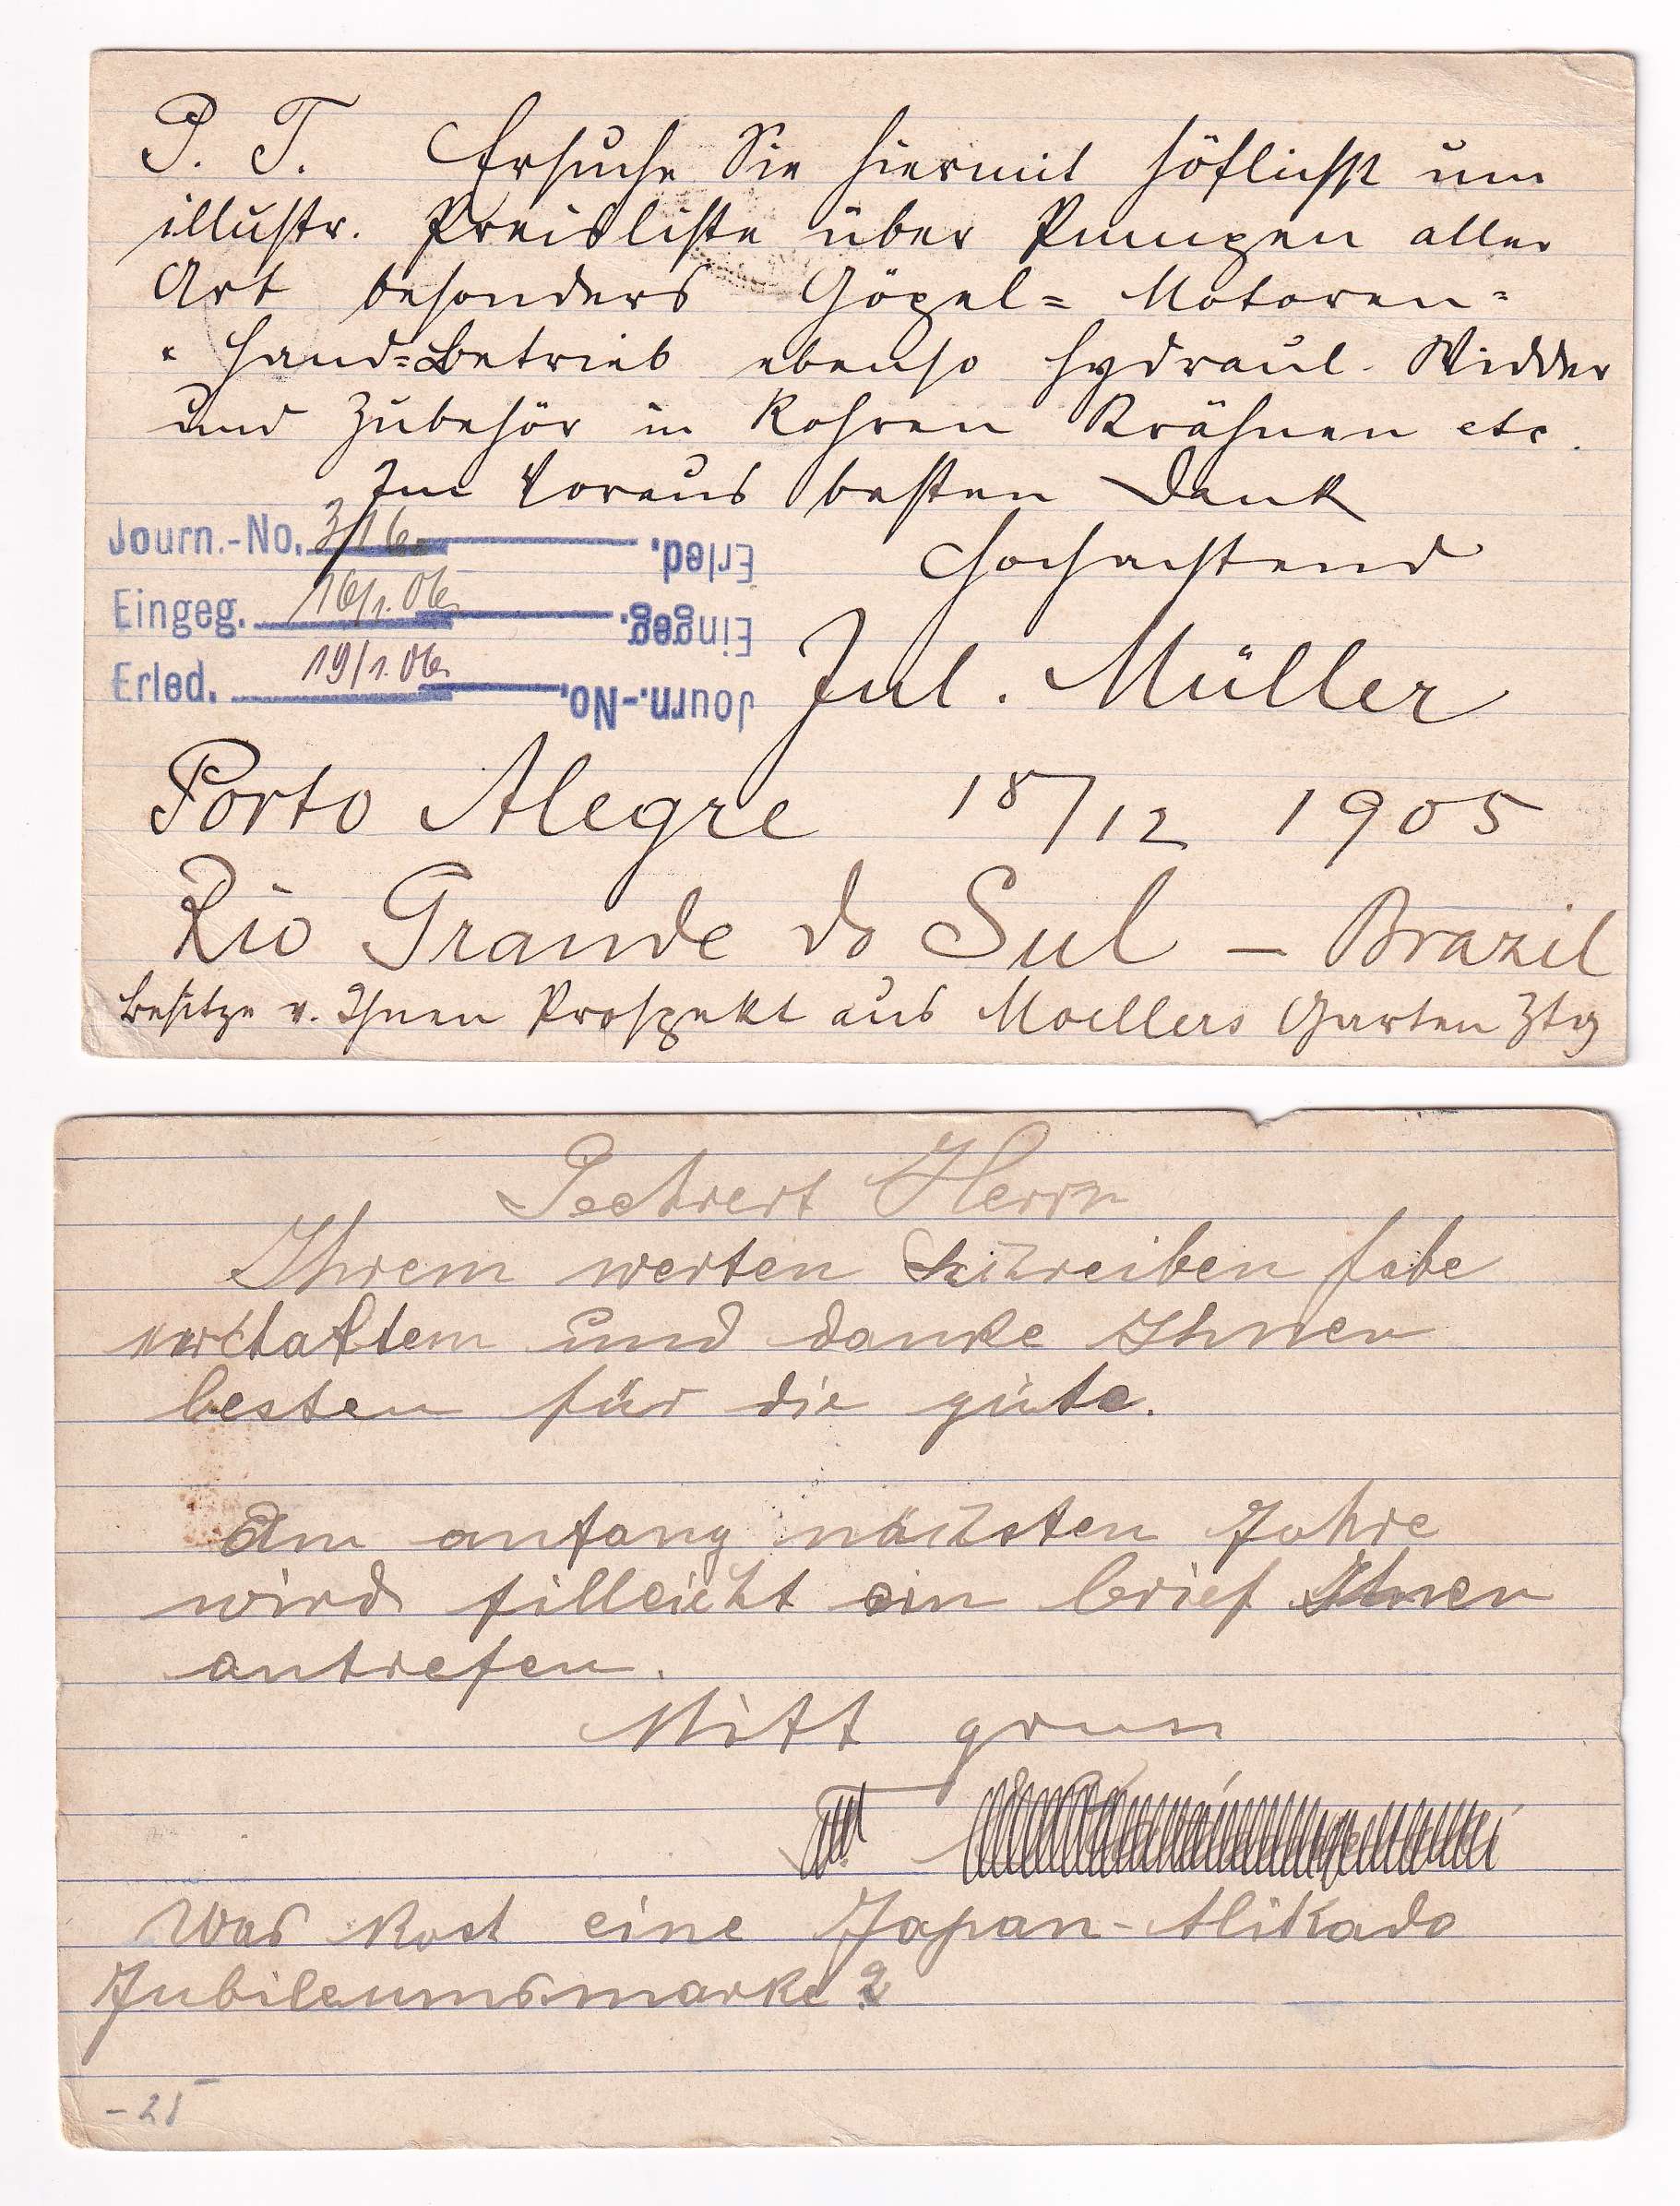 P. T. Ersuche Sie hiermit höflichst um
illustr. Preisliste über Pumpen aller
Art besonders Göpel= Motoren=
" Hand=Betrieb ebenso hydraul. Widder
und Zubehör in Rohren Krähnen etc.
Im Voraus besten Dank
Hochachtend
Jul. Müller
Journ.-No. 316
Eingeg. 16/1.06
Erled. 19/1.06
Journ.-No.
Eingeg.
Erled.
Porto Alegre 18/12 1905
Rio Grande do Sul – Brazil
Besitze v. Ihnen Prospekt aus Moellers Garten Ztg
Herrn
Ihrem werten Schreiben habe
und danke Ihnen
besten für die güte.
Am anfang nächsten Jahre
wird filleicht ein brief Ihnen
antrefen.
Mitt grus
Was kost eine Japan-Mikado
Jubileumsmarke?
– 25